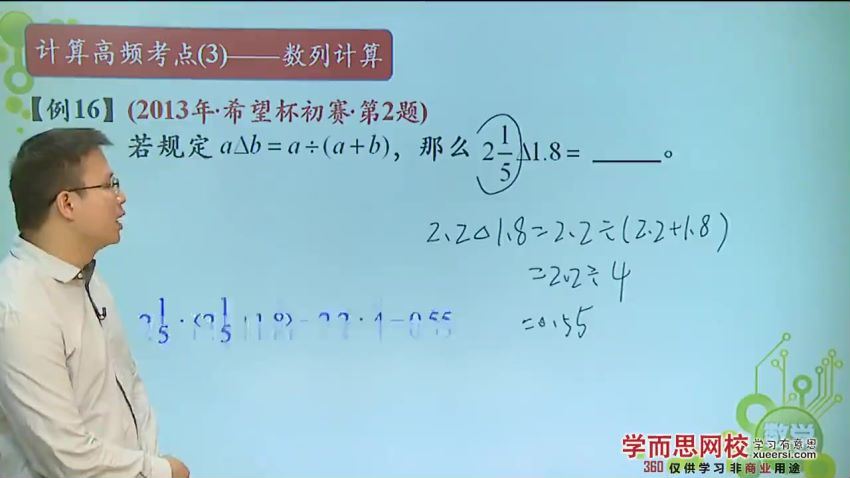 计算高频考点(3)——数列计算
【例16】(2013年·希望杯初赛·第2题)
若规定 a∆b=a÷(a+b)，那么 2 1/5 ∆1.8= ____。
2.2∆1.8=2.2÷(2.2+1.8)
=2.2÷4
=0.55
2 1/5 ÷(2 1/5 +1.8)=2.2÷4=0.55
数学
学而思网校 学习有意思
xueersi.com
360 仅供学习 非商业用途